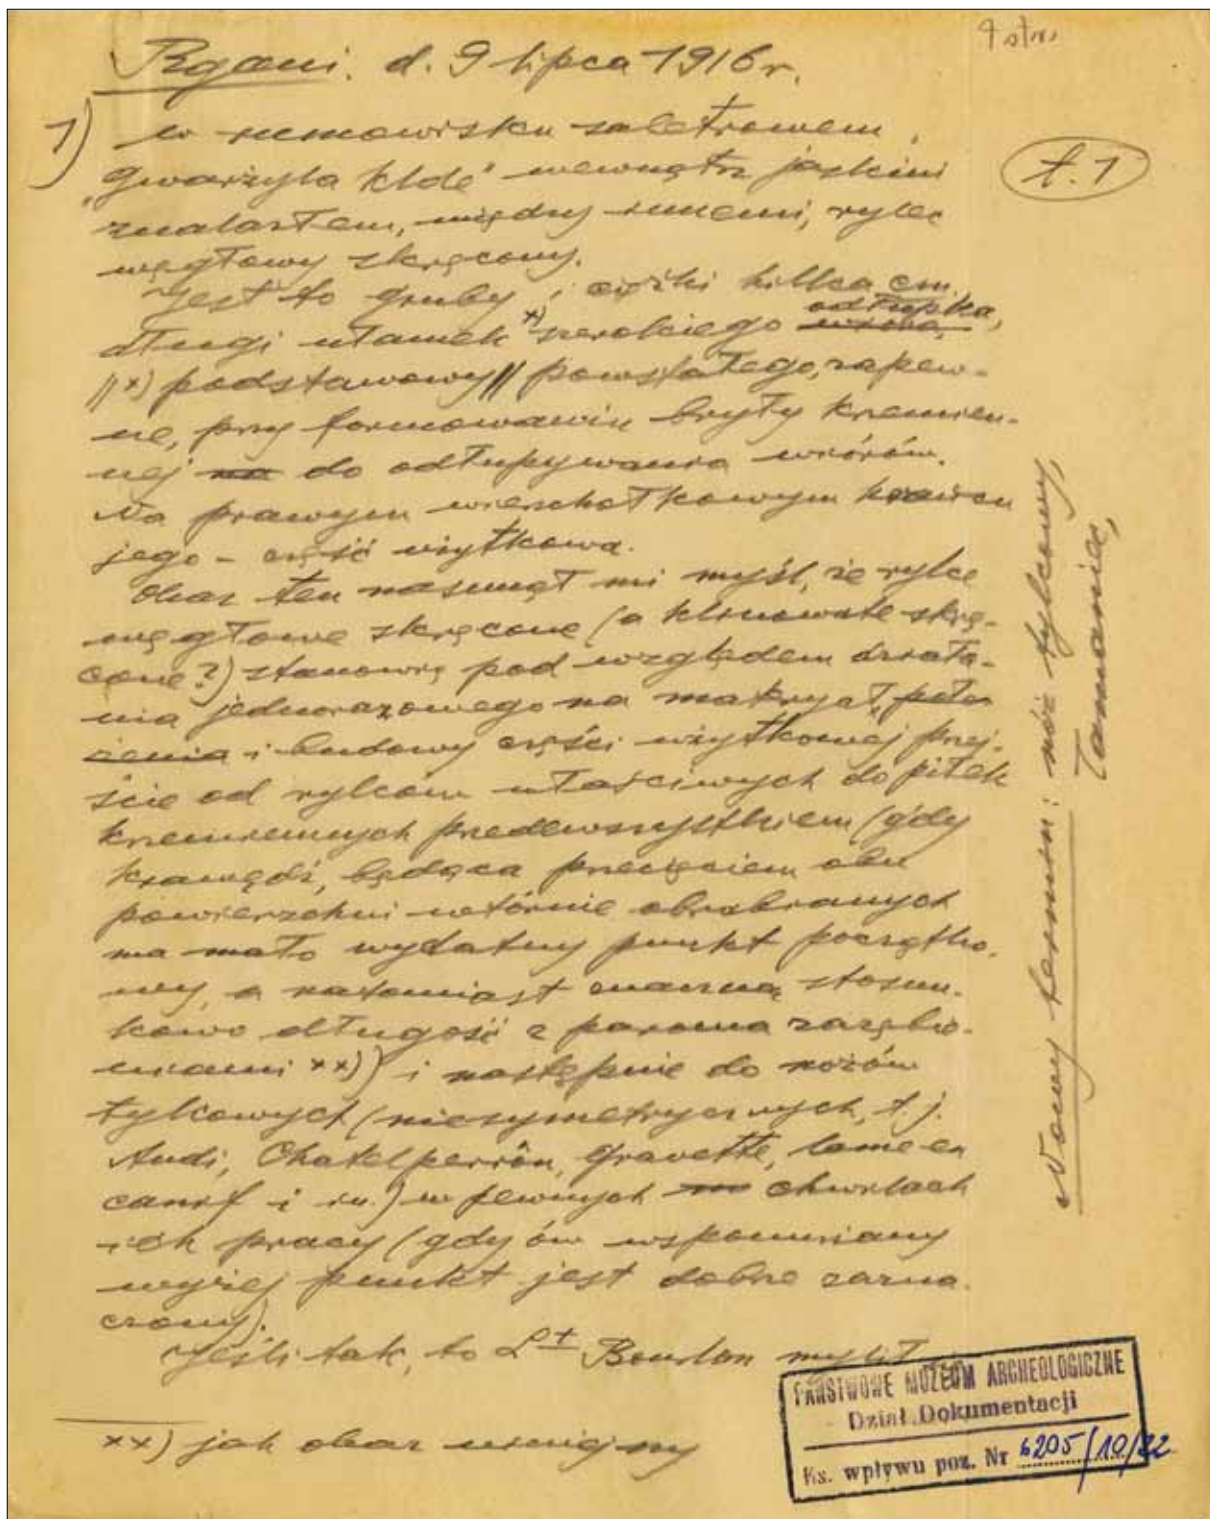 9 str.
Rgani. d. 9 lipca 1916 r.
t. 1
1) w rumowisku saletrowem,
"Gwarżyła Kldé" wewnątrz jaskini
znalazłem, między innemi, rylec
węgłowy skręcony.
Jest to gruby, i ciężki kilka cm.
długi ułamek x) szerokiego wióra odłupka,
// x) podstawowy // powstałego, zapew-
ne, przy formowaniu bryły krzemien-
nej na do odłupywania wiórów.
Na prawym wierzchołkowym krawcu
jego – część użytkowa.
Okaz ten nasunął mi myśl, że rylce
węgłowe skręcone (a klinowate skrę-
cone?) stanowią pod względem działa-
nia jednorazowego na materjał, poło
żenia i budowy części użytkowej przej-
ście od rylców właściwych do piłek
krzemiennych przedewszystkiem (gdy
krawędź, będąca przecięciem obu
powierzchni wtórnie obrabianych
ma mało wydatny punkt początko-
wy, a natomiast znaczną stosun-
kowo długość z paroma zazębie-
niami xx)) i następnie do nożów
tylcowych (niesymetrycznych, t. j.
Audi, Chatelperrôn, Gravette, lame en
canif i in.) w pewnych chwilach
ich pracy (gdy ów wspomniany
wyżej punkt jest dobrze zazna-
czony).
Jeśli tak, to Lt Bourlon mylił
xx) jak okaz niniejszy
Nowy termin: nóż tylcowy,
łamaniec,
PAŃSTWOWE MUZEUM ARCHEOLOGICZNE
Dział Dokumentacji
Ks. wpływu poz. Nr 6205/10/22